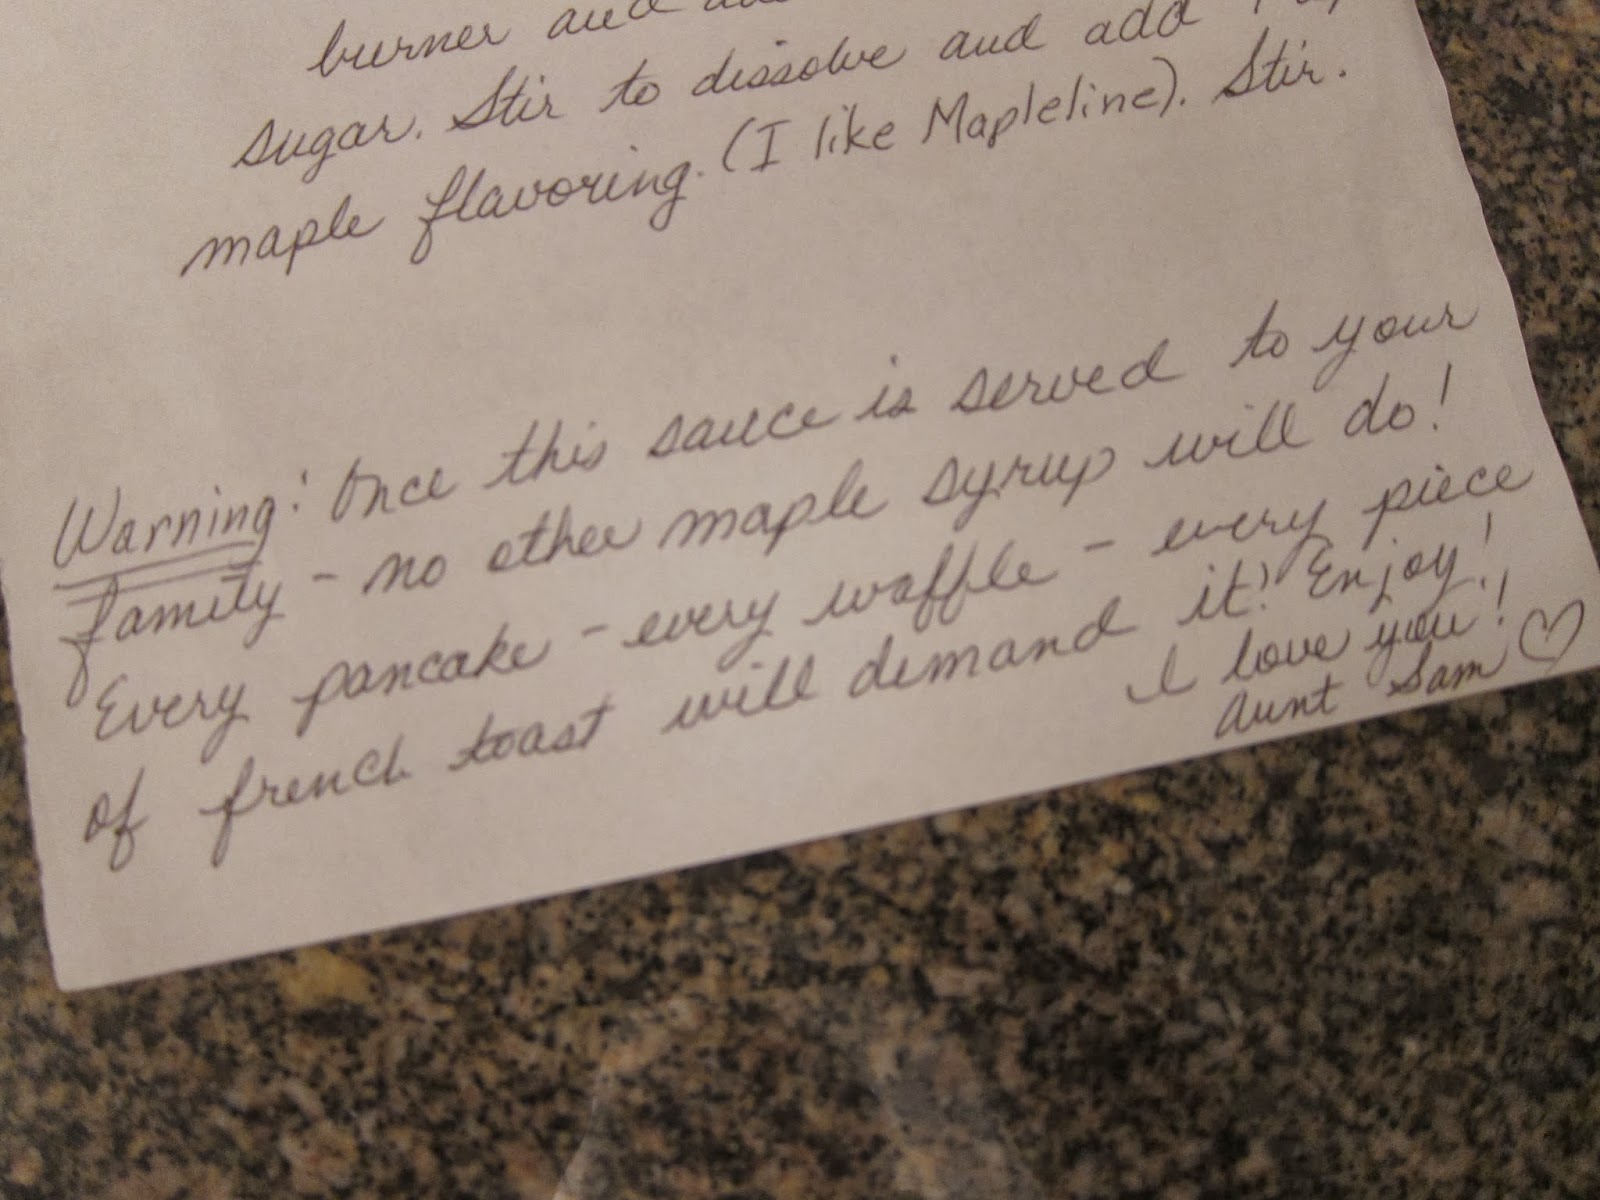 burner and
sugar. Stir to dissolve and add
maple flavoring. (I like Mapleline). Stir.
Warning: Once this sauce is served to your
family - no other maple syrup will do!
Every pancake - every waffle - every piece
of french toast will demand it! Enjoy!
I love you!
Aunt Sam